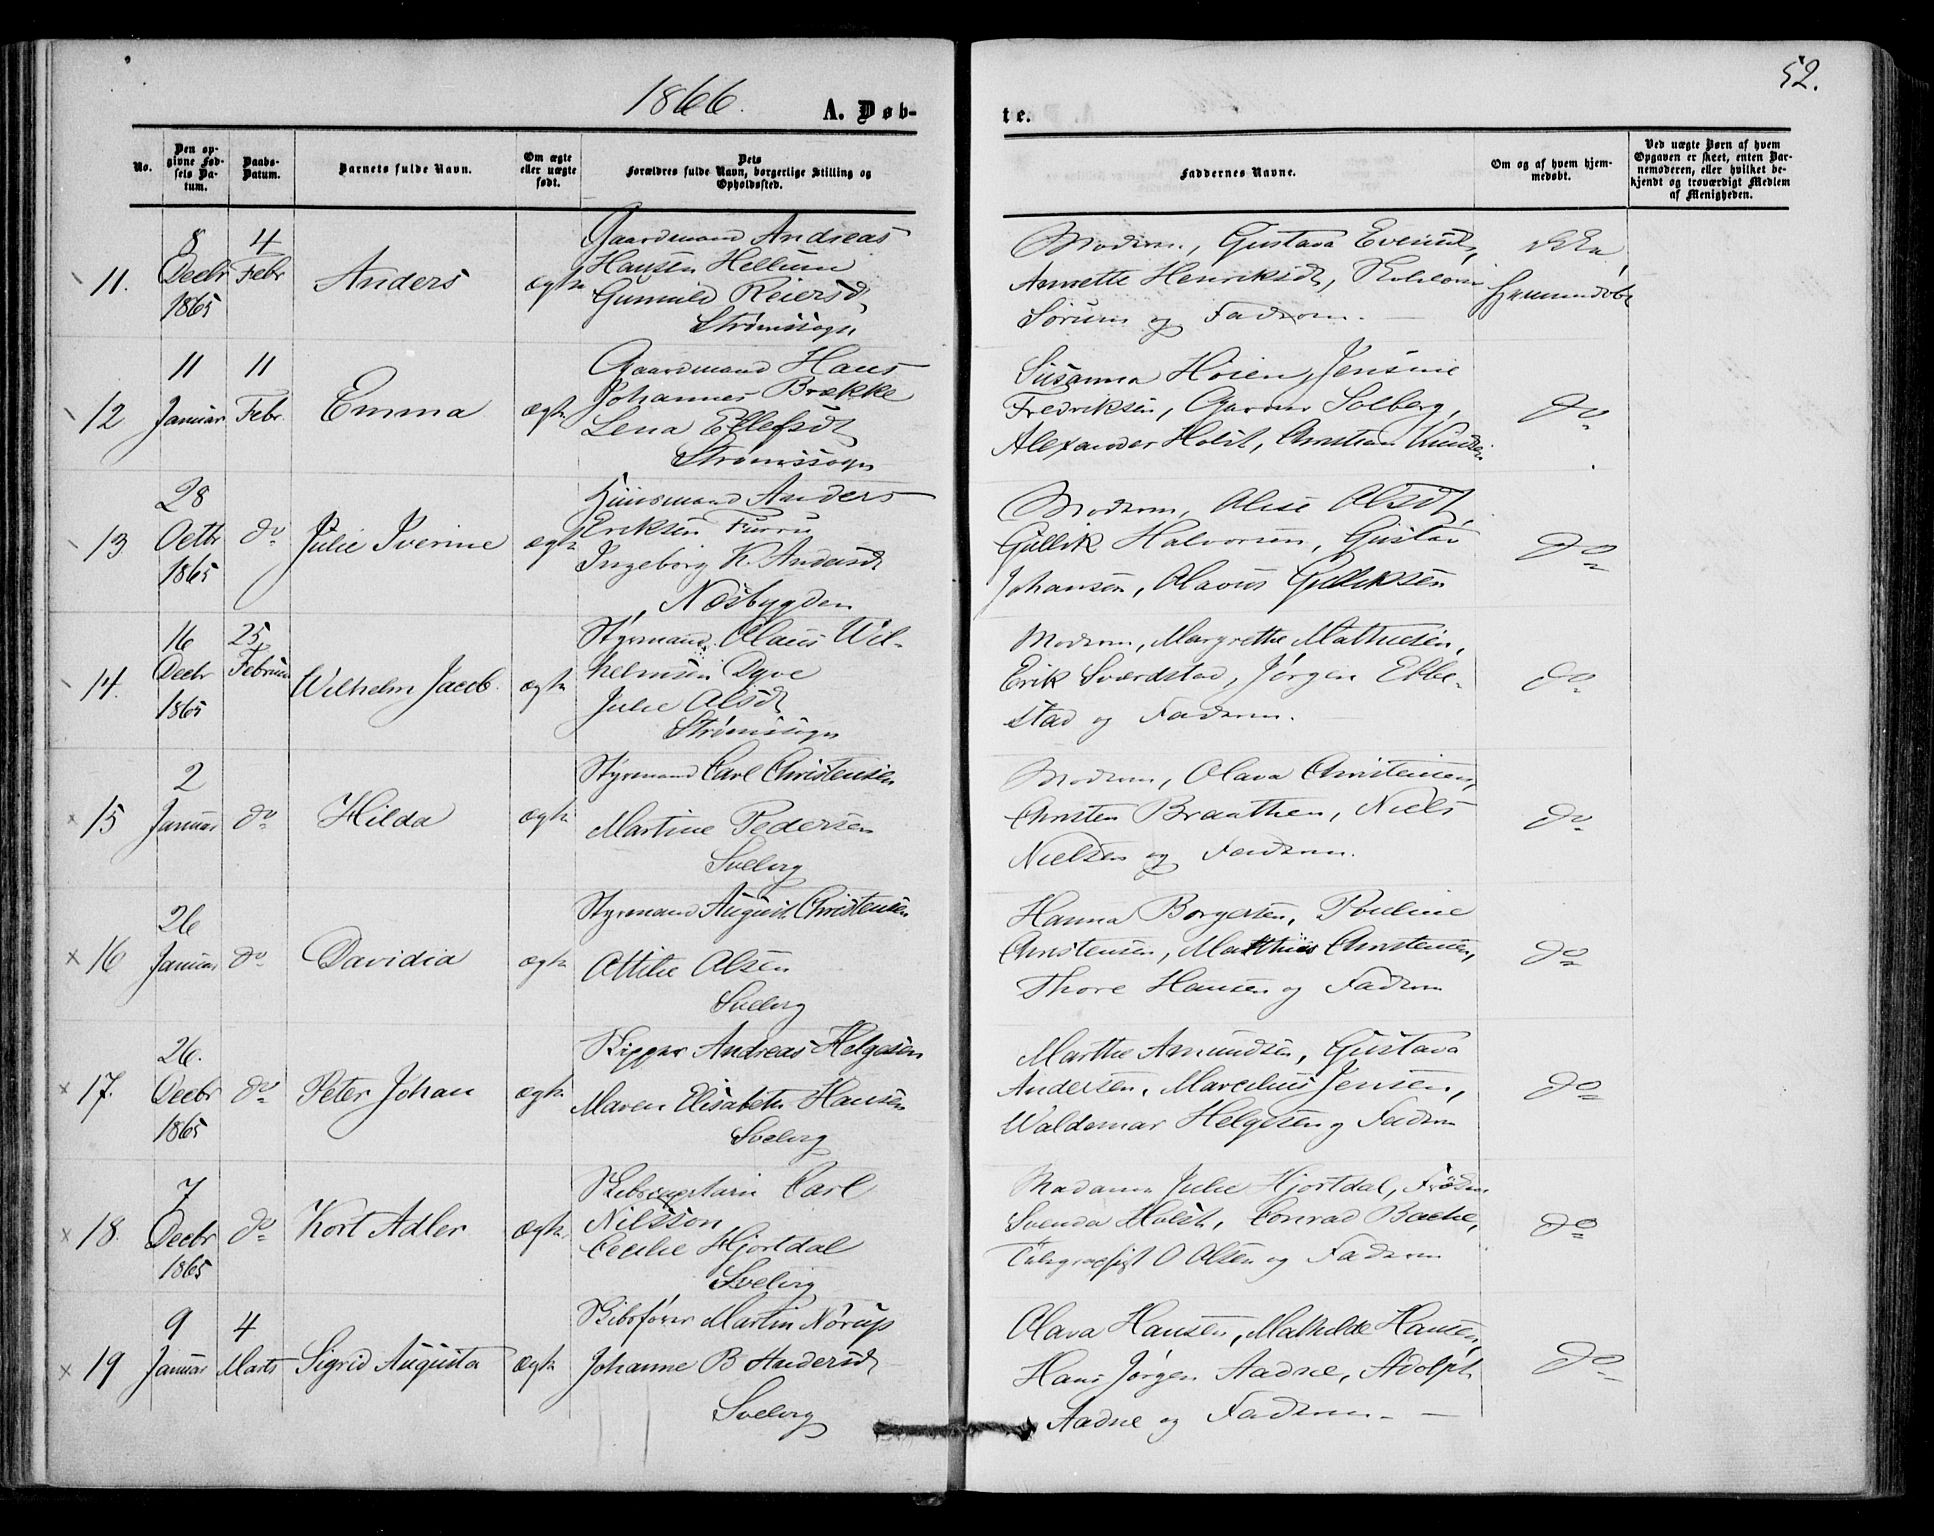 1866.
A. Døb-
te.
52.
No.
Den op-
givne Fød-
sels Da-
tum.
Daabs-
Datum.
Barnets fulde Navn.
Om ægte
eller uægte
født.
Dets
Forældres fulde Navn, borgerlige Stilling og
Opholdssted.
Faddernes Navne.
Om og af hvem hjem-
medøbt.
Ved uægte Børn af hvem
Opgaven er skeet, enten Bar-
nemoderen, eller hvilket be-
kjendt og troværdigt Medlem
af Menigheden.
11.
8
Decbr
1865
4
Febr
Anders
ægte
Gaardmand Andreas
Hansen Hellum
Gunnild Reiersd
Strømssogn
Modren, Gustava
Annette Henriksdt,
Sørum og Fadren.
ikke
hjemmedøbt
12
11
Januar
11
Febr.
Emma
ægte
Gaardmand Hans
Johannes Brække
Lena Ellefsdt
Strømssogn
Susanna Hoien, Jensine
Fredriksen, Solberg,
Alexander Holst, Christian Knudsen
do
13
28
Octbr
1865
do
Julie Iverine
ægte
Huusmand Anders
Eriksen Furru
Ingeborg K. Andersdt
Næsbygden
Modren, Olsdt,
Gullik Halvorsen, Gustav
Johansen, Olavus Gulliksen
do
14.
16
Decbr
1865
25
Februar
Wilhelm Jacob.
ægte
Styrmand Olaus Wil-
helmsen Dyve
Julie Olsdt
Strømssogn
Modren, Margrethe Mathiesen,
Erik Sværdstad, Jørgen Ebbe-
stad og Fadren.
do
15
2
Januar
do
Hilda
ægte
Styrmand Carl Christensen
Martine Pedersen
Svelvig
Modren, Olava Christensen,
Christen Braathen, Niels
Nielsen og Fadren.
do
16
26
Januar
do
Davidia
ægte
Styrmand August Christensen
Ottilie Olsen
Svelvig
Hanna Borgersen, Pouline
Christensen, Matthias Christensen,
Thore Hansen og Fadren
do
17.
26.
Decbr
1865
do
Peter Johan
ægte
Skipper Andreas Helgesen
Maren Elisabeth Hansen
Svelvig
Marthe Amundsen, Gustava
Andersen, Marcelius Jensen,
Waldemar Helgesen og Fadren
do
18.
7
Decbr
1865
do
Kort Adler
ægte
Carl
Nilsson
Cecilie Hjortdal
Svelvig
Madame Julie Hjortdal, Frøken
Svenda Holst, Conrad Bache,
Telegrafist O Olsen og Fadren
do
19
9
Januar
4
Marts
Sigrid Augusta
ægte
Skibsfører Martin Nørup
Johanne B Andersdt
Svelvig
Olava Hansen, Mathilde Hansen,
Hans Jørgen Aadne, Adolph
Aadne og Fadren.
do